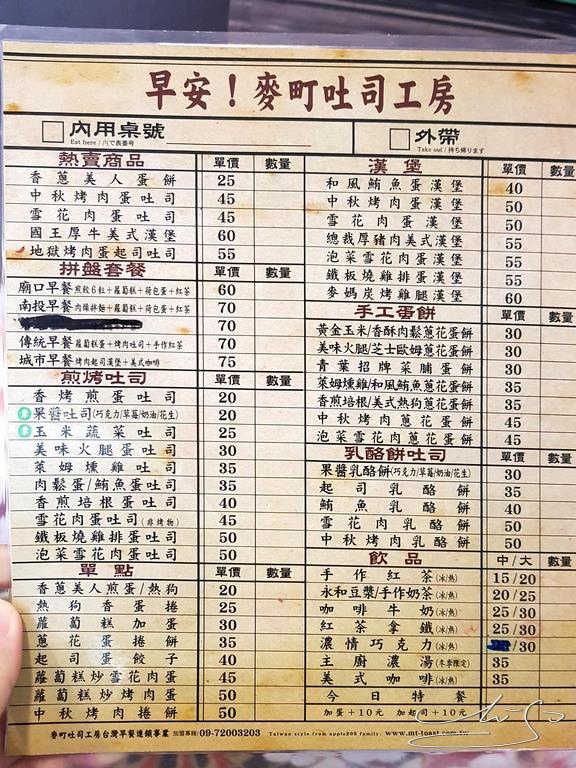 早安！麥町吐司工房
內用桌號
Eat here / 內で表番号
外帶
Take out / 持ち帰ります
熱賣商品 單價 數量
香蔥美人蛋餅 25
中秋烤肉蛋吐司 45
雪花肉蛋吐司 45
國王厚牛美式漢堡 60
地獄烤肉蛋起司吐司 55
拼盤套餐 單價 數量
廟口早餐 煎餃6粒+蘿蔔糕+荷包蛋+紅茶 60
南投早餐 肉燥拌麵+蘿蔔糕+荷包蛋+紅茶 70
70
傳統早餐 蘿蔔糕蛋+烤肉吐司+手作紅茶 70
城市早餐 烤肉起司漢堡+美式咖啡 75
煎烤吐司 單價 數量
香烤煎蛋吐司 20
素 果醬吐司(巧克力/草莓/奶油/花生) 20
素 玉米蔬菜吐司 25
美味火腿蛋吐司 30
萊姆燻雞吐司 35
肉鬆蛋/鮪魚蛋吐司 35
香煎培根蛋吐司 40
雪花肉蛋吐司(非烤物) 45
鐵板燒雞排蛋吐司 50
泡菜雪花蛋吐司 50
單點 單價 數量
香蔥美人煎蛋/熱狗 20
熱狗香蛋捲 25
蘿蔔糕加蛋 30
蔥花捲餅 35
起司蛋餃子 40
蘿蔔糕炒雪花肉蛋 45
蘿蔔糕炒烤肉蛋 50
中秋烤捲餅 50
漢堡 單價 數量
和風鮪魚蛋漢堡 40
中秋烤肉蛋漢堡 50
雪花肉蛋漢堡 50
總裁厚豬肉美式漢堡 55
泡菜雪花蛋漢堡 55
鐵板燒雞排蛋漢堡 55
麥媽炭烤雞腿漢堡 60
手工蛋餅 單價 數量
黃金玉米/香酥肉鬆蔥花蛋餅 30
美味火腿/芝士歐姆蔥花蛋餅 30
青葉招牌菜脯蛋餅 30
萊姆燻雞/和風鮪魚蔥花蛋餅 35
香煎培根/美式熱狗蔥花蛋餅 35
中秋烤肉蔥花蛋餅 45
泡菜雪花蔥花蛋餅 45
乳酪餅吐司 單價 數量
果醬乳酪餅(巧克力/草莓/奶油/花生) 30
起司乳酪餅 35
鮪魚乳酪餅 40
雪花肉乳酪餅 50
中秋烤肉乳酪餅 50
飲品 中/大 數量
手作紅茶(冰/熱) 15/20
永和豆漿/手作奶茶(冰/熱) 20/25
咖啡牛奶(冰/熱) 25/30
紅茶拿鐵(冰/熱) 25/30
濃情巧克力(冰/熱) /30
主廚濃湯(冬季限定) 35
美式咖啡(冰/熱) 35
今日特餐
加蛋+10元 加起司+10元
麥町吐司工房台灣早餐連鎖事業 加盟專線/09-72003203 Taiwan style from apple203 family. www.mt-toast.com.tw